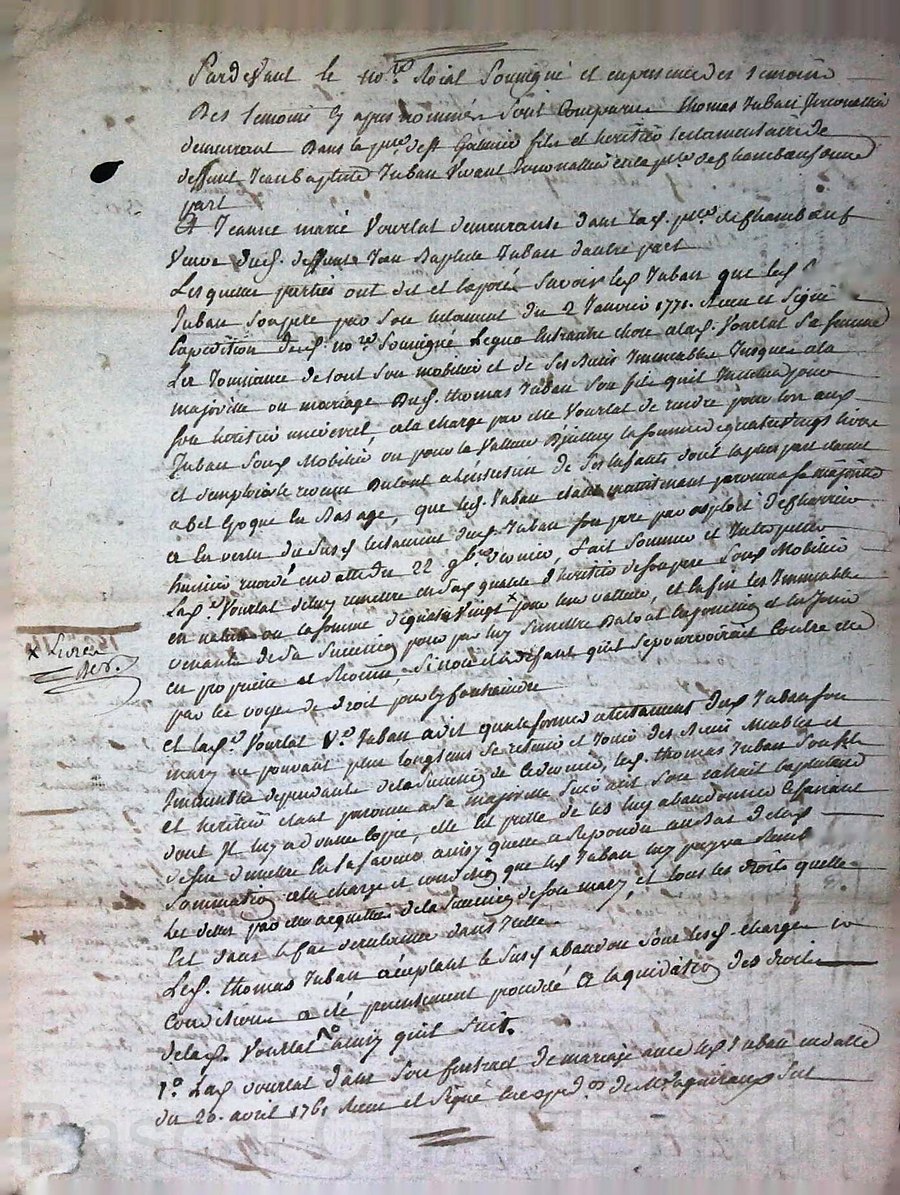 Pardevant le no.re Roial Soussigné et en presence des temoins
Des temoins cy apres nommés sont Comparus thomas Juban
demeurant Dans la p.sse de st Galmier fils et heritier testamentaire de
deffunt Jean Baptiste Juban Vivant de la p.sse de Chambœuf d'une
part
Et Jeanne marie Vourlat demeurante dans lad. p.sse de Chambœuf
Veuve dud. deffunt Jean Baptiste Juban d'autre part
Lesquelles parties ont dit et exposé Savoir led. Juban que led. S.
Juban Son pere par Son testament du 2 Janvier 1771. Recu et Signé
Expedition dud. no.re Soussigné Legua Entrautre chose a lad. Vourlat Sa femme
La Jouissance de tout Son mobilier et de Ses Biens Immeubles Jusques a la
majorité ou mariage Dud. thomas Juban Son fils qu'il Institua pour
Son heritier universel, a la charge par elle Vourlat de rendre pour lors aud.
Juban Sond. Mobilier ou pour la Valleur D'Iceluy la Somme de quatre vingt livres
et d'employer le revenu a l'entretien de Ses Enfants dont la plus part etaient
a cet Epoque en Bas age, que led. Juban etant maintenant parvenu a Sa majorité
a En vertu du Susd. testament dud. Juban Son pere par exploit de Charrier
huissier en datte du 22 9bre Dernier, fait Sommer et Interpeller
Lad. Vourlat de luy remettre En Sad. qualité d'heritier de Son pere Sond. Mobilier
en nature ou la Somme de quatre Vingt x pour leur valleur, et Enfin les Immeubles
venants de Sa Succession pour par luy en prendre la possession et En Jouir
en propriété et Revenu, Sinon et a deffaut qu'il Se pourvoirait Contre elle
par les voyes de droit pour l'y Contraindre
x Livres
et lad. Vourlat V.e Juban a dit que conformement au testament dud. Juban Son
mary ne pouvant plus longtems Se retenir et Jouir des Biens Meubles et
Immeubles dependants de la Succession de Ce dernier, led. thomas Juban Son fils
et heritier etant parvenu a Sa majorité
dont Il luy a donné Copie, elle Est prette de les luy abandonner Et
demettre En Sa faveur ainsy qu'elle a Repondu au Bas de lad.
Sommation a la charge et condition que led. Juban luy payera
Les dettes par elle acquittées de la Succession de Son mary, et tous les droits quelle
Est dans le Cas de reclamer dans Icelle.
Led. thomas Juban acceptant le Susd. abandon Sous lesd. charges et
Conditions a été presentement procédé a la liquidation des droits
de lad. Vourlat ainsy qu'il Suit.
1.o Lad. Vourlat dans Son Contract de mariage avec led. Juban en datte
du 20. avril 1761 Recu et Signé